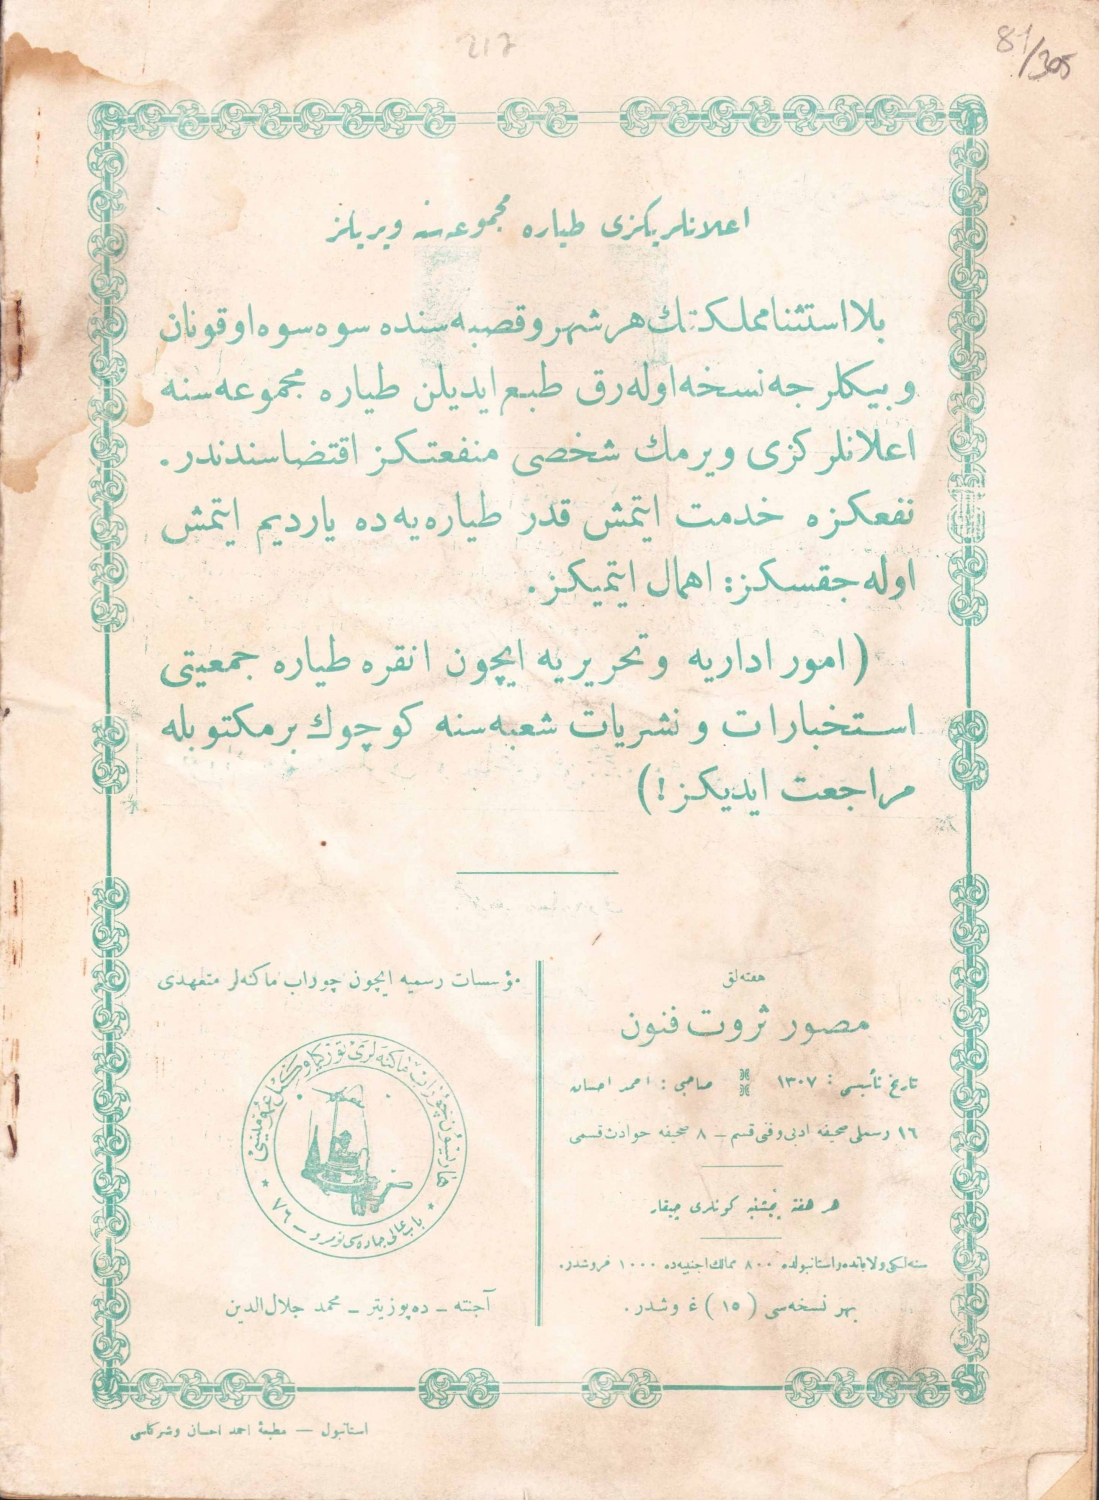 217
81/305
اعلانلریكزی طیاره مجموعه‌سنه ویریكز
بلااستثنا مملكتك هر شهر و قصبه‌سنده سوه سوه اوقونان
و بیكلرجه نسخه اوله‌رق طبع ایدیلن طیاره مجموعه‌سنه
اعلانلركزی ویرمك شخصی منفعتكز اقتضاسندندر.
نفعكزه خدمت ایتمش قدر طیاره‌یه ده یاردیم ایتمش
اوله‌جقسكز: اهمال ایتمیكز.
(امور اداریه و تحریریه ایچون انقره طیاره جمعیتی
استخبارات و نشریات شعبه‌سنه كوچوك بر مكتوبله
مراجعت ایدیكز!)
هفته‌لق
مصور ثروت فنون
تاریخ تأسیسی: ١٣٠٧ صاحبی: احمد احسان
١٦ رسملی صحیفه ادبی وفنی قسم – ٨ صحیفه حوادث قسمی
هر هفته پنجشنبه كونلری چیقار
سنه‌لكی ولایاتده واستانبولده ٨٠٠ ممالك اجنبیه‌ده ١٠٠٠ غروشدر.
بهر نسخه‌سی (١٥) غروشدر.
مؤسسات رسمیه ایچون چوراب ماكنه‌لر متعهدی
چوراب ماكنه‌لری
باب عالی جاده‌سی نومرو – ٧٦
آجنته – ده‌پوزیتر – محمد جلال‌الدین
استانبول — مطبعۀ احمد احسان وشركاسی